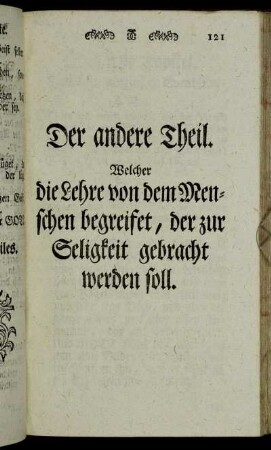 121
Der andere Theil.
Welcher
die Lehre von dem Men-
schen begreifet, der zur
Seligkeit gebracht
werden soll.